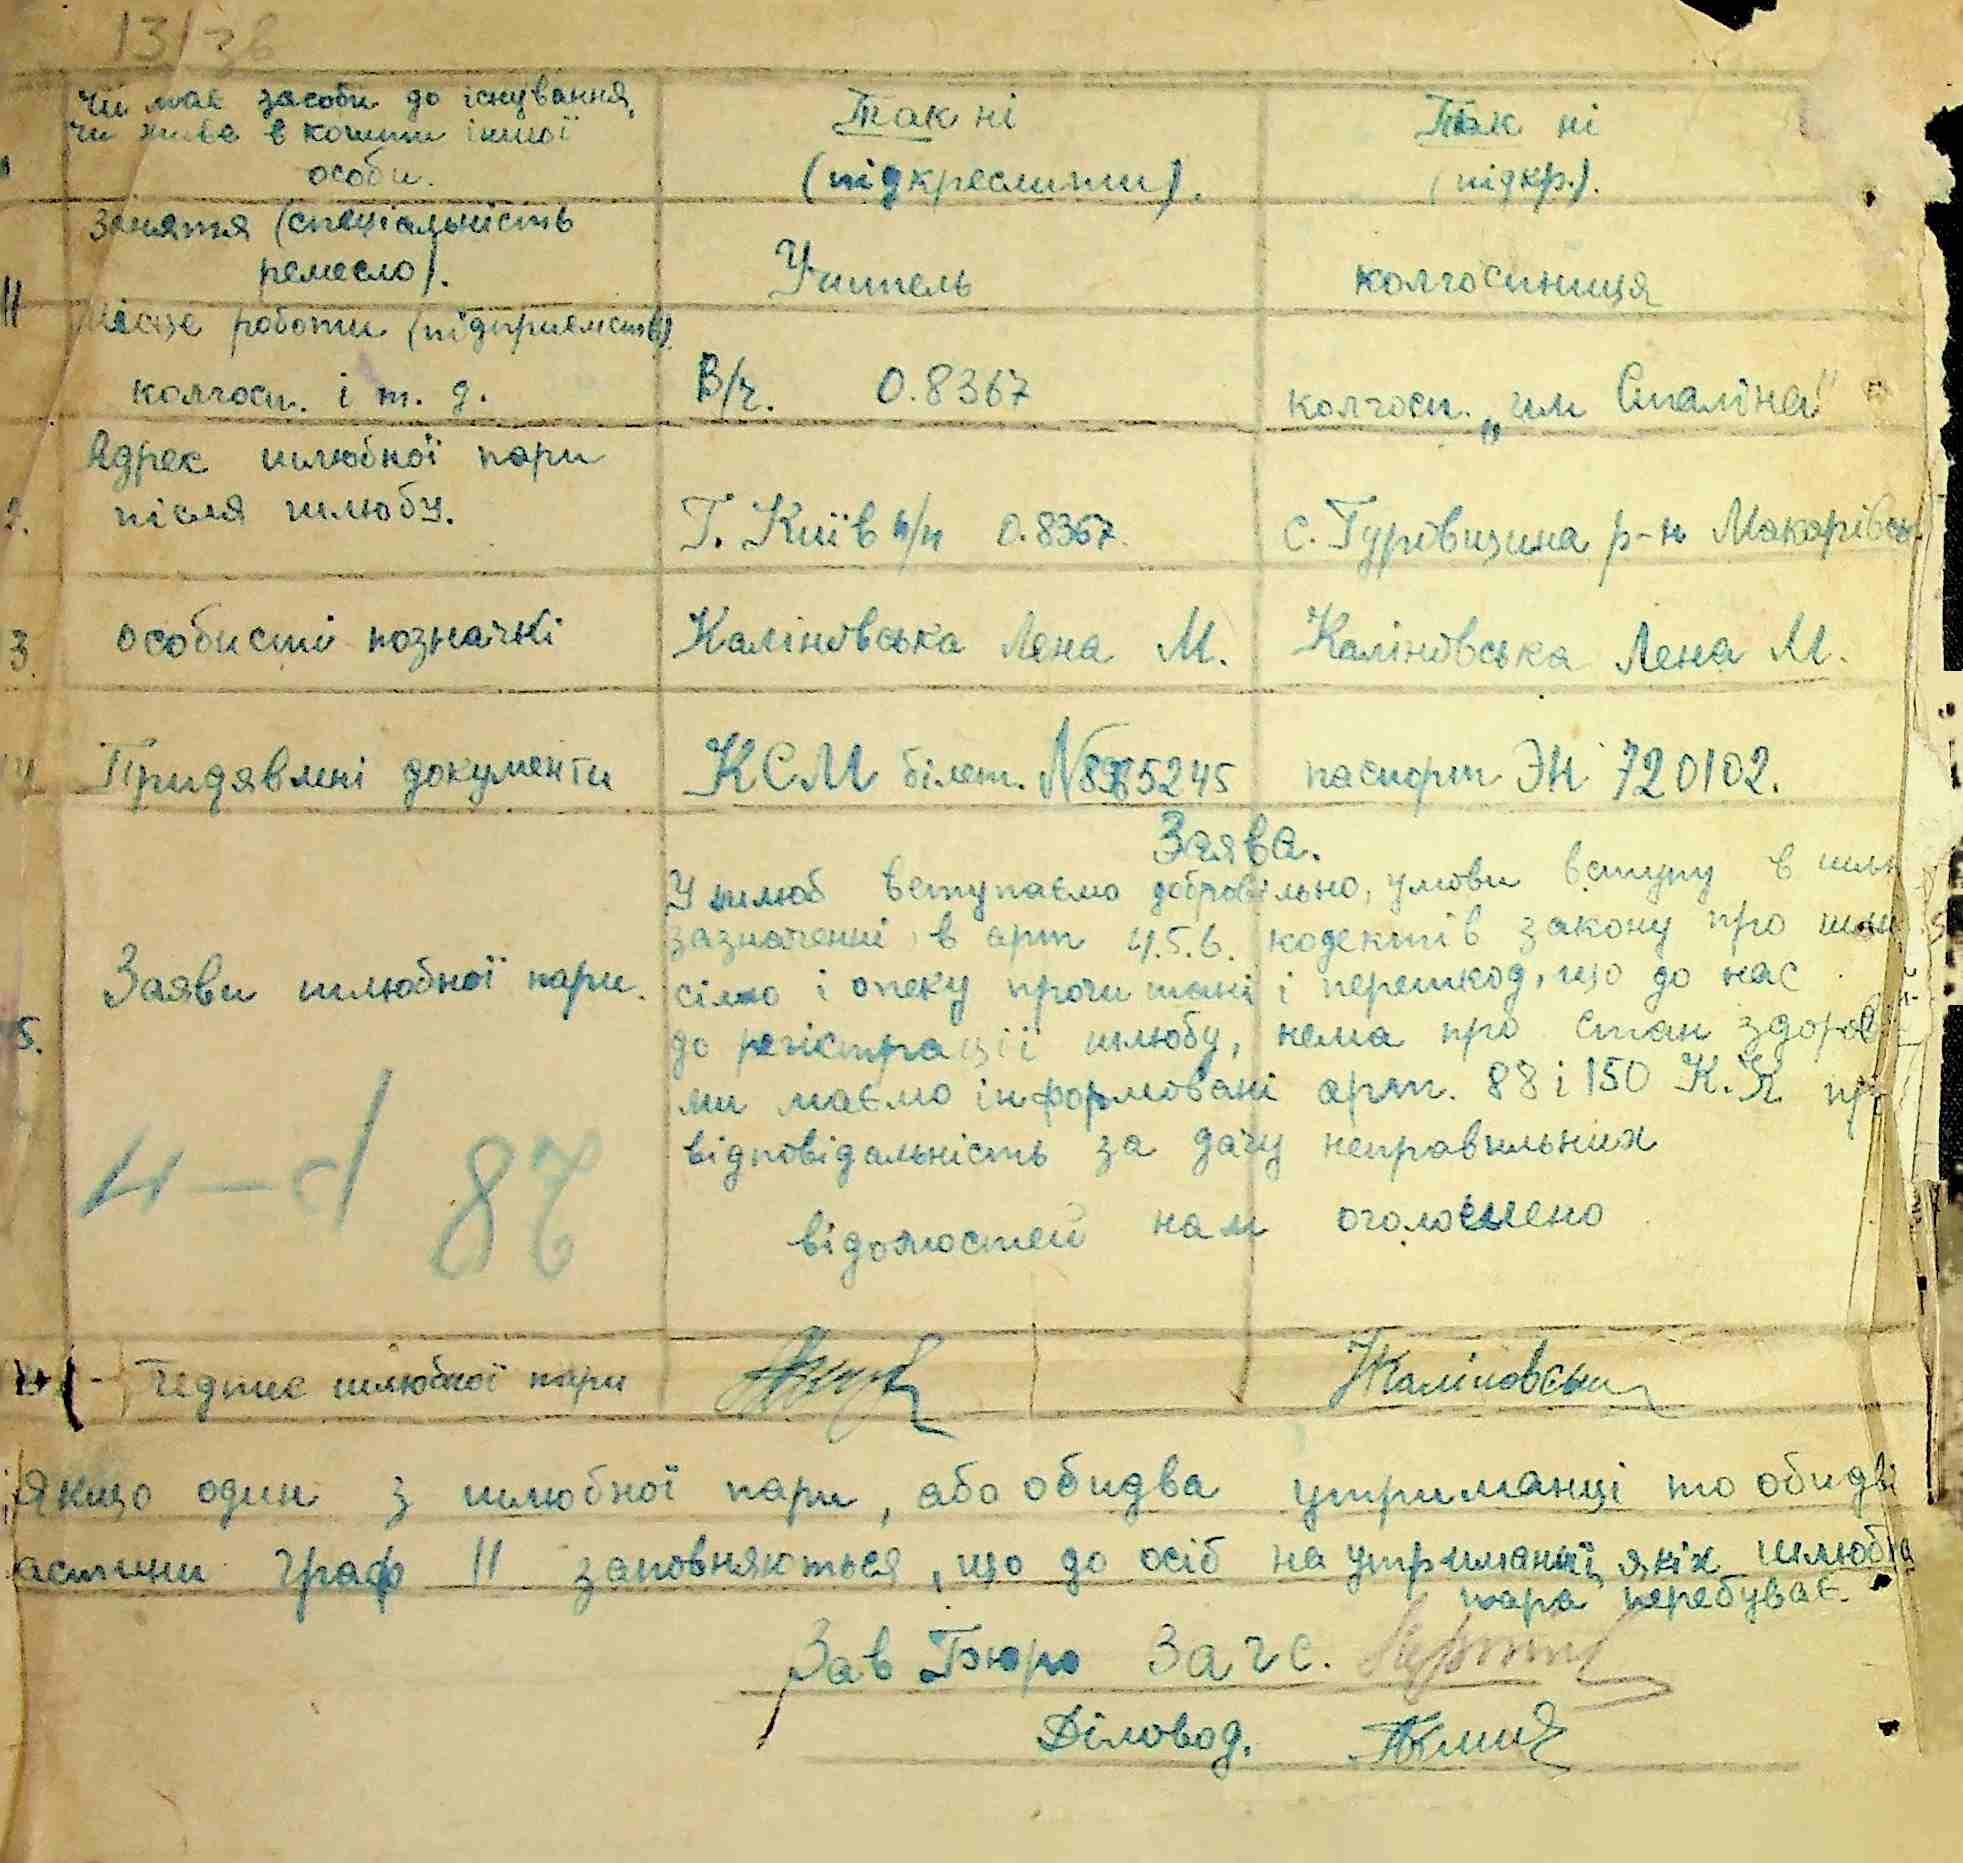 13/зв
Чи має засоби до існування, Так ні Так ні
чи живе в кошти іншої
особи. (підкреслити). (підкр.).
Заняття (спеціальність
ремесло). Учитель колгоспниця
11
Місце роботи (підприємств)
колгосп. і т. д. В/ч. 0.8367 колгосп. „им Сталіна"
Адрес шлюбної пари
2. після шлюбу. Г. Київ п/я 0.8367. с. Гуровщина р-н Макарівськ
3. особисті позначкі Каліновська Лена М. Каліновська Лена М.
Придявлені документи КСМ білет. № 8985245 паспорт ЭН 720102.
Заява.
У шлюб вступаємо добровільно, умови вступу в шлю
зазначенні в арт 4.5.6. кодектів закону про шлю
Заяви шлюбної пари. сімю і опеку прочитані і перешкод, що до нас
5. до регістрації шлюбу, нема про стан здоров
ми маємо інформовані арт. 88 і 150 К.К. пр
відповідальність за дачу неправильних
87
відомостей нам оголошено
Подпис шлюбної пари Каліновськ
Якщо один з шлюбної пари, або обидва утриманці то обидві
астини граф 11 заповняються, що до осіб на утриманні якіх шлюбна
пара перебуває.
Зав Бюро Загс.
Діловод.